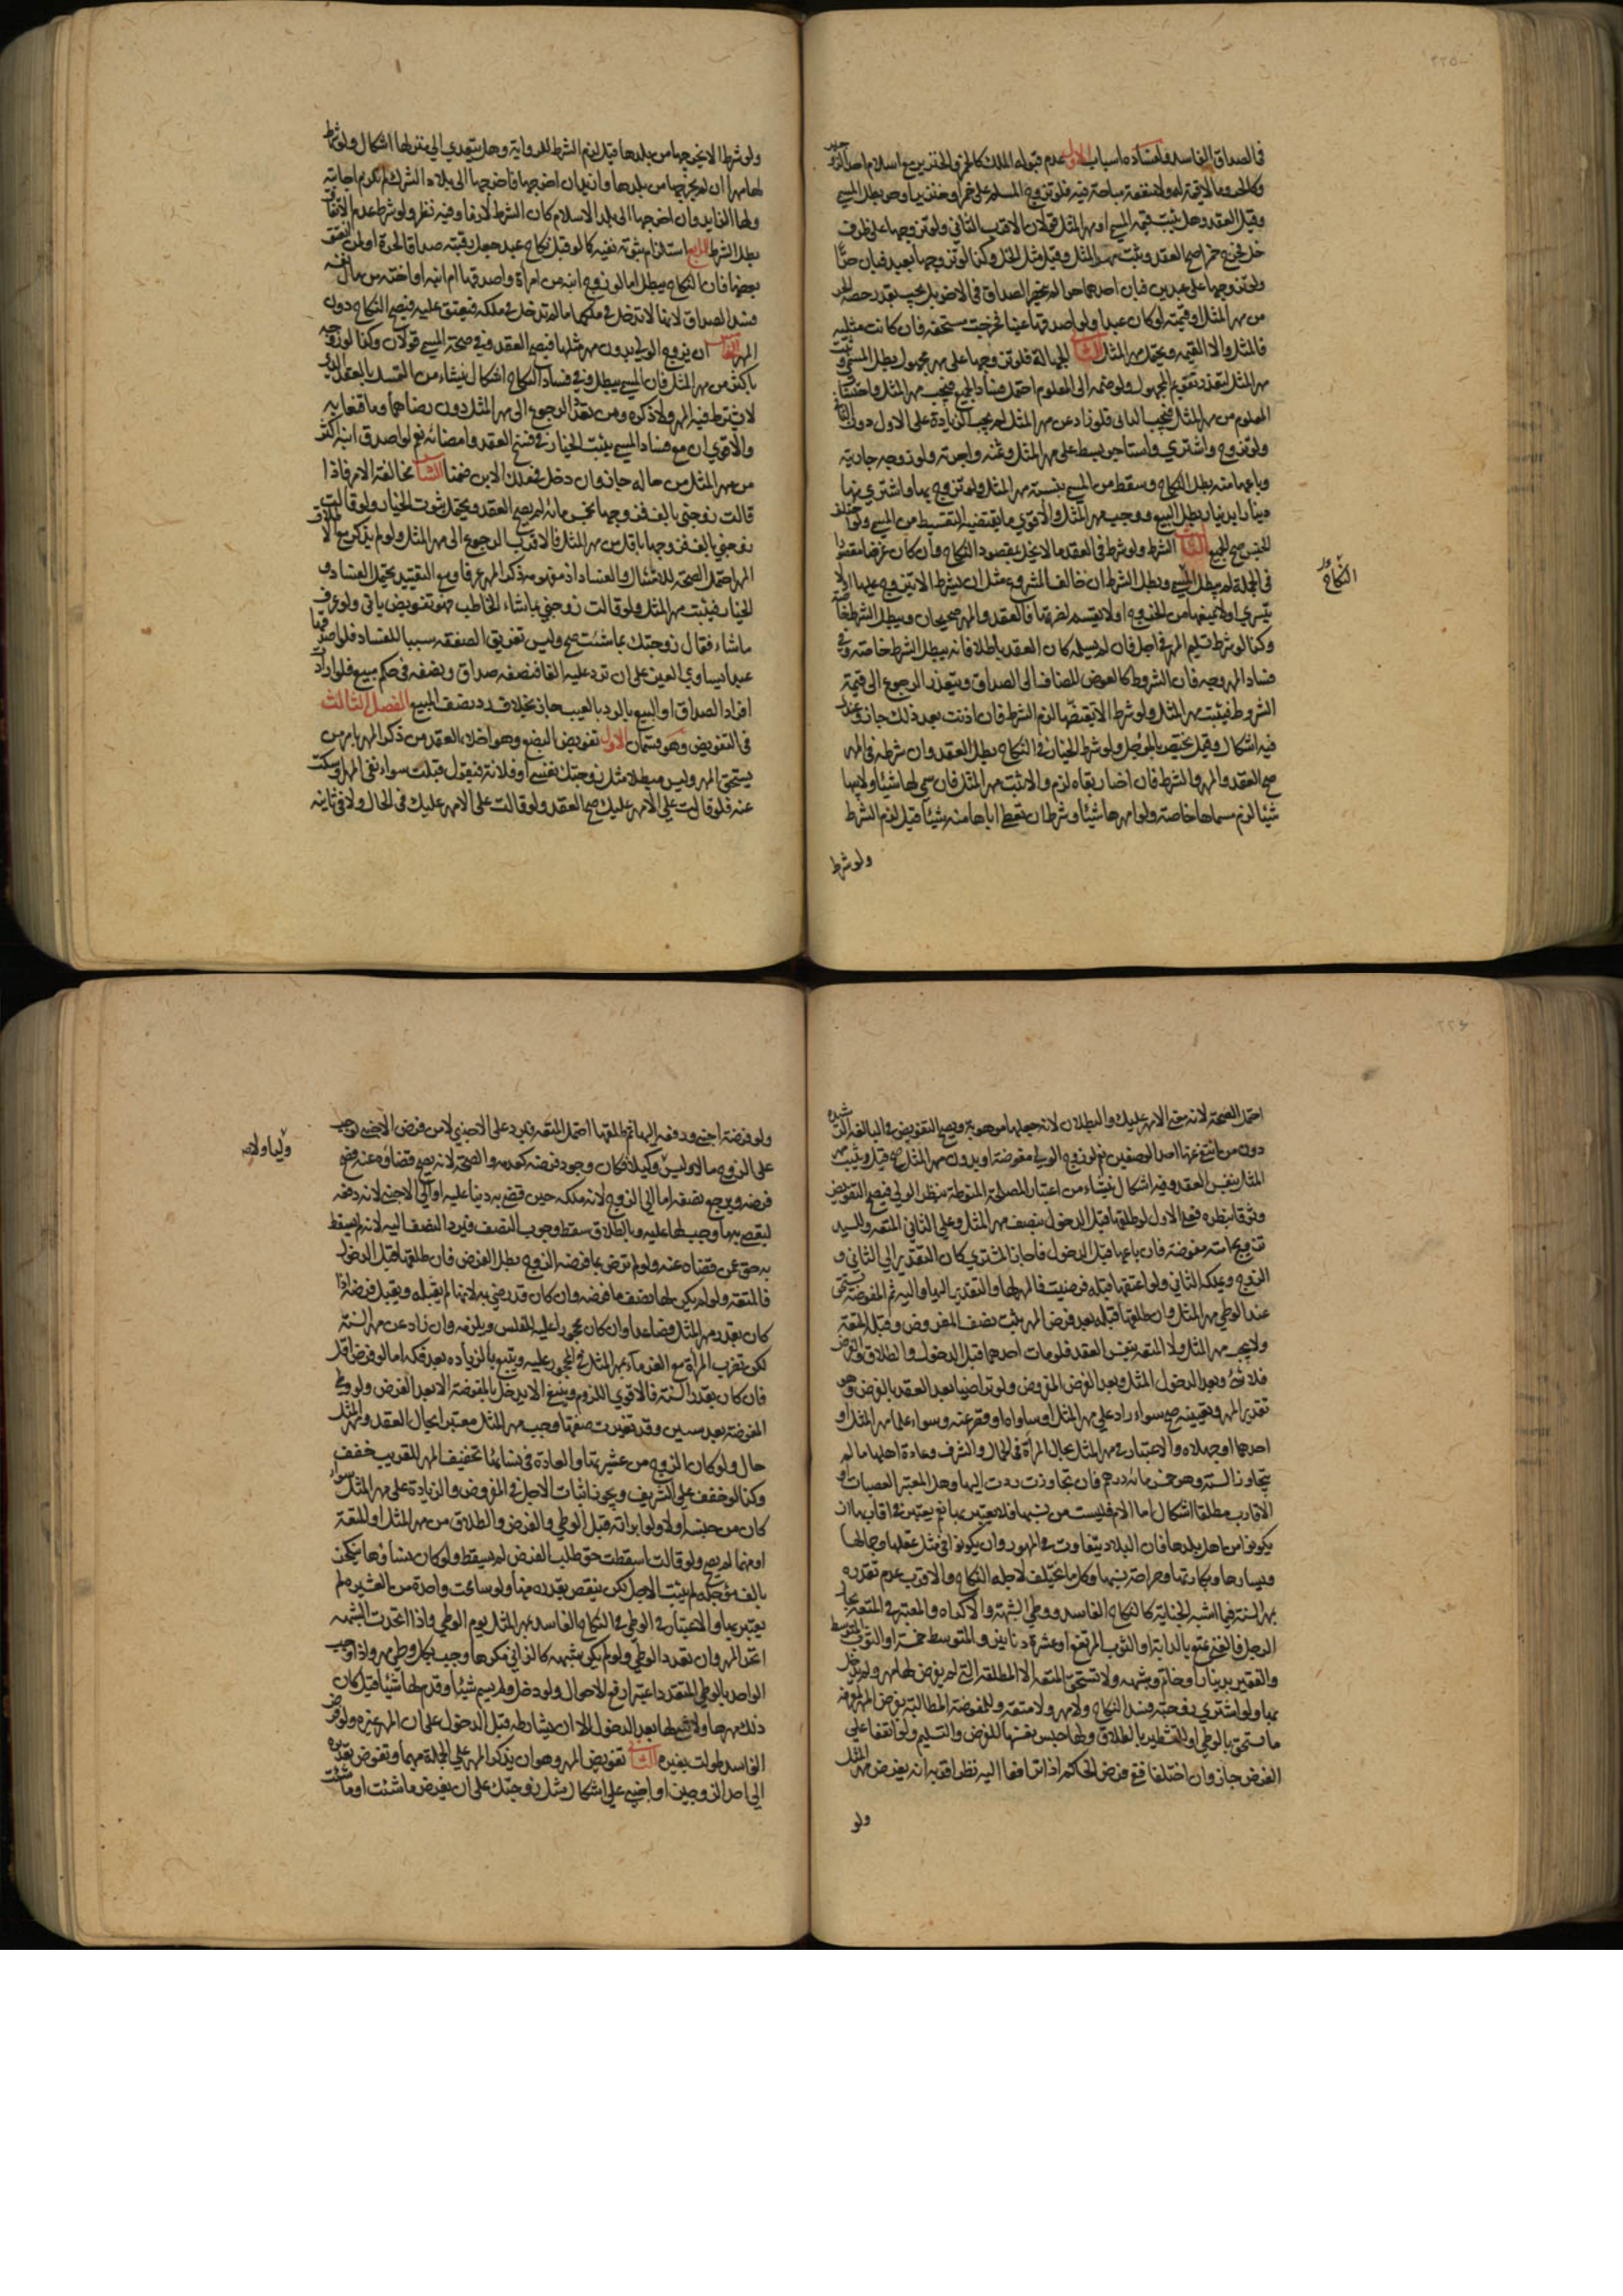 في الصداق الفاسد ولفساده اسباب الاول عدم قبوله الملك كالخمر والخنزير مع اسلام احد الزوجين
وكالحر وما لا قيمة له ولا منفعة مباحة فيه فلو تزوج المسلم على خمر او خنزير او حر بطل المسمى
وقيل العقد وهل يثبت قيمة المسمى او مهر المثل قولان الاقرب الثاني ولو تزوجها على ظرف
خل فخرج خمرا صح العقد ويثبت مهر المثل وقيل مثل الخل وكذا لو تزوجها بعبد فبان حرا
ولو تزوجها على عبدين فبان احدهما حرا لم ينحصر الصداق في الاخر بل يجب بقدر حصة الحر
من مهر المثل او قيمته لو كان عبدا ولو اصدقها عينا فخرجت مستحقة فان كانت مثلية
فالمثل والا القيمة ويحتمل مهر المثل الثاني الجهالة فلو تزوجها على مهر مجهول بطل المسمى وثبت
مهر المثل لتعذر تقويم المجهول ولو ضمه الى المعلوم احتمل فساد الجميع فيجب مهر المثل واحتساب
المعلوم من مهر المثل فيجب الباقي فلو زاد عن مهر المثل لم يجب الزيادة على الاول دون الثاني
ولو تزوج واشترى واستاجر بسط على مهر المثل وثمنه واجرته ولو زوجه جاريته
وباعها منه بطل النكاح وسقط من المسمى بنسبة مهر المثل ولو تزوج بها واشترى منها
دينارا بدينار بطل البيع ووجب مهر المثل والاقوى ما يقتضيه التقسيط من المسمى ولو اختلف
الجنس صح الجميع الثالث الشرط ولو شرط في العقد ما لا يخل بمقصود النكاح وان كان غرضا مقصودا
في الجملة لم يبطل المسمى ويبطل الشرط ان خالف المشروع مثل ان يشرط الا يتزوج عليها او لا
يتسرى او لا يمنعها من الخروج او لا يقسم لضرتها فالعقد والمهر صحيحان ويبطل الشرط خاصة
وكذا لو شرط تسليم المهر في اجل فان لم يسلمه كان العقد باطلا فانه يبطل الشرط خاصة وفي
فساد المهر وجه فان الشروط كالعوض المضاف الى الصداق ويتعذر الرجوع الى قيمة
الشروط فيثبت مهر المثل ولو شرط الا يقتضها لزم الشرط فان اذنت بعد ذلك جاز وعندي
فيه اشكال وقيل يختص بالمؤجل ولو شرط الخيار في النكاح بطل العقد وان شرطه في المهر
صح العقد والمهر والشرط فان اختار بقاءه لزم والا ثبت مهر المثل فان سمى لها شيئا ولابيها
شيئا لزم مسماها خاصة ولو امهرها شيئا وشرط ان يعطى اباها منه شيئا قيل لزم الشرط
ولو شرط
النكاح
ولو شرط الا يخرجها من بلدها قيل لزم الشرط للرواية وهل يتعدى الى منزلها اشكال ولو شرط
لها مهرا ان لم يخرجها من بلدها وازيد ان اخرجها فاخرجها الى بلاد الشرك لم يلزم اجابته
ولها الزايد وان اخرجها الى بلد الاسلام كان الشرط لازما وفيه نظر ولو شرط عدم الانفاق
بطل الشرط الرابع استلزام ثبوته نفيه كما لو قبل نكاح عبد جعل رقبته صداقا لحرة او لمن انعتق
بعضها فان النكاح يبطل اما لو زوج ابنه من امراة واصدقها ام ابنه او اخته من مال نفسه
فسد الصداق لانها لا تدخل في ملكها ما لم تدخل في ملكه فيعتق عليه فيصح النكاح دون
المهر الخامس ان يزوج الولي بدون مهر مثلها فيصح العقد وفي صحة المسمى قولان وكذا لو زوجه
باكثر من مهر المثل فان المسمى يبطل وفي فساد النكاح اشكال ينشاء من التمسك بالعقد الذي
لا يشترط فيه المهر ولا ذكره ومن تعذر الرجوع الى مهر المثل دون رضاهما وما وقعا به
والاقوى ان مع فساد المسمى يثبت الخيار في فسخ العقد وامضائه نعم لو اصدق ابنه اكثر
من مهر المثل من ماله جاز وان دخل في ملك الابن ضمنا السادس مخالفة الامر فاذا
قالت زوجني بالف فزوجها بخمس مائة لم يصح العقد ويحتمل ثبوت الخيار ولو قالت
زوجني بالف فزوجها باقل من مهر المثل فالاقرب الرجوع الى مهر المثل ولو لم يذكر مع الاطلاق
المهر احتمل الصحة للامتثال والفساد اذ مفهومه ذكر المهر عرفا ومع التقييد يحتمل الفساد و
الخيار فيثبت مهر المثل ولو قالت زوجني بما شاء المخاطب فهو تفويض ياتي ولو عرف
ما شاء فقال زوجتك بما شئت صح وليس تفريق الصفقة سببا للفساد فلو اصدقها
عبدا يساوي الفين على ان ترد عليه الفا فنصفه صداق ونصفه في حكم مبيع فلو ارادت
افراد الصداق او البيع بالرد بالعيب جاز بخلاف رد نصف المبيع الفصل الثالث
في التفويض وهو قسمان الاول تفويض البضع وهو اخلاء العقد من ذكر المهر بامر من
يستحق المهر وليس مبطلا مثل زوجتك نفسي او فلانة فيقول قبلت سواء نفى المهر او سكت
عنه فلو قالت على الا مهر عليك صح العقد ولو قالت على الا مهر عليك في الحال ولا في ثانيه
احتمل الصحة لانه معنى الا مهر عليك والبطلان لانه جعلها موهوبة ويصح التفويض في البالغة الرشيدة
دون من انتفى عنها احد الوصفين نعم لو زوج الولي مفوضة او بدون مهر المثل صح قيل ويثبت مهر
المثل بنفس العقد وفيه اشكال ينشاء من اعتبار المصلحة المنوطة بنظر الولي فيصح التفويض
وثوقا بنظره فعلى الاول لو طلقها قبل الدخول بنصف مهر المثل وعلى الثاني المتعة وللسيد
تزويج امته مفوضة فان باعها قبل الدخول فاجاز المشتري كان التقدير الى الثاني و
الزوج ويملكه الثاني ولو اعتقها قبله فرضيت فالمهر لها والتقدير اليها واليه ثم المفوضة تستحق
عند الوطي مهر المثل وان طلقها قبله بعد فرض المهر يثبت نصف المفروض وقبله المتعة
ولا يجب مهر المثل ولا المتعة بنفس العقد فلو مات احدهما قبل الدخول والطلاق والفرض
فلا شئ وبعد الدخول المثل وبعد الفرض المفروض ولو تراضيا بعد العقد بالفرض وهو
تقدير المهر وتعيينه صح سواء زاد على مهر المثل او ساواه او قصر عنه وسواء علما مهر المثل او
احدهما او جهلاه والاعتبار في مهر المثل بحال المراة في الجمال والشرف وعادة اهلها ما لم
يتجاوز السنة وهو خمس مائة درهم فان تجاوزت ردت اليها وهل المعتبر العصبات او
الاقارب مطلقا اشكال اما الام فليست من نسبها فلا يعتبر بها نعم يعتبر في اقاربها ان
يكونوا من اهل بلدها فان البلاد يتفاوت في المهور وان يكونوا في مثل عقلها وجمالها
ويسارها وبكارتها وصراحة نسبها وكل ما يختلف لاجله النكاح والاقرب عدم تقديره
بمهر السنة فيما اشبه الجناية كالنكاح الفاسد ووطي الشبهة والاكراه والمعتبر في المتعة بحال
الرجل فالغني يمتع بالدابة او الثوب المرتفع او عشرة دنانير والمتوسط خمسة او الثوب المتوسط
والفقير بدينار او خاتم وشبهه ولا تستحق المتعة الا المطلقة التي لم يفرض لها مهر ولم يدخل
بها ولو اشترى زوجته فسد النكاح ولا مهر ولا متعة وللمفوضة المطالبة بفرض المهر لتعرف
ما تستحق بالوطي او بالتشطير بالطلاق ولها حبس نفسها للفرض والتسليم ولو اتفقا على
الفرض جاز وان اختلفا ففي فرض الحاكم اذا ترافعا اليه نظر اقربه انه يفرض مهر المثل
ولو
ولو فرضه اجنبي ودفعه اليها ثم طلقها احتمل المتعة فيرد على الاجنبي لان فرض الاجنبي يوجب
على الزوج مالا وليس وليا ولا وكيلا فكان وجود فرضه كعدمه والصحة لانه يصح قضاؤه عنه فصح
فرضه ويرجع بنصفه اما الى الزوج لانه ملكه حين قضى به دينا عليه او الى الاجنبي لانه دفعه
ليقضى به ما وجب لها عليه وبالطلاق سقط وجوب النصف فيرد النصف اليه لانه لم يسقط
به حق عمن قضاه عنه ولو لم ترض بما فرضه الزوج بطل الفرض فان طلقها قبل الدخول
فالمتعة ولو لم يكن لها نصف ما فرضه وان كان قد رضي به لانها لم يقبله ويقبل فرضه اذا
كان بقدر مهر المثل فصاعدا وان كان محجورا عليه لفلس ويلزمه وان زاد عن مهر السنة
لكن تضرب المراة مع الغرماء بمهر المثل في المحجور عليه ويتبع بالزيادة بعد فكه اما لو فرض اقل
فان كان بقدر السنة فالاقوى اللزوم وينبغي الا يدخل بالمفوضة الا بعد الفرض ولو وطي
المفوضة بعد سنين وقد تغيرت صفتها وجب مهر المثل معتبرا بحال العقد ومهر المثل
حال ولو كان الزوج من عشيرتها والعادة في نسائها تخفيف المهر للقريب خفف
وكذا لو خفف على الشريف ويجوز اثبات الاجل في المفروض والزيادة على مهر المثل سواء
كان من جنسه او لا ولو ابراته قبل الوطي والفرض والطلاق من مهر المثل او المتعة
او منهما لم يصح ولو قالت اسقطت حق طلب الفرض لم يسقط ولو كان نساؤها ينكحن
بالف مؤجلة لم يثبت الاجل لكن ينقص بقدره منها ولو سامحت واحدة من العشيرة لم
يعتبر بها والاعتبار في الوطي في النكاح الفاسد بمهر المثل يوم الوطي واذا اتحدت الشبهة
اتحد المهر وان تعدد الوطي ولو لم يكن شبهة كالزاني مكرها وجب بكل وطي مهر واذا وجب
الواحد بالوطي المتعدد اعتبر ارفع الاحوال ولو دخل ولم يسم شيئا وقدم لها شيئا قيل كان
ذلك مهرها ولا شئ لها بعد الدخول الا ان يشارطه قبل الدخول على ان المهر غيره ولو فرض
الفاسد طولب بغيره الثاني تفويض المهر وهو ان يذكر المهر على الجملة مبهما وتفوض تقديره
الى احد الزوجين او اجنبي على اشكال مثل زوجتك على ان يفرض ما شئت او ما شئت
وليا ولا صح